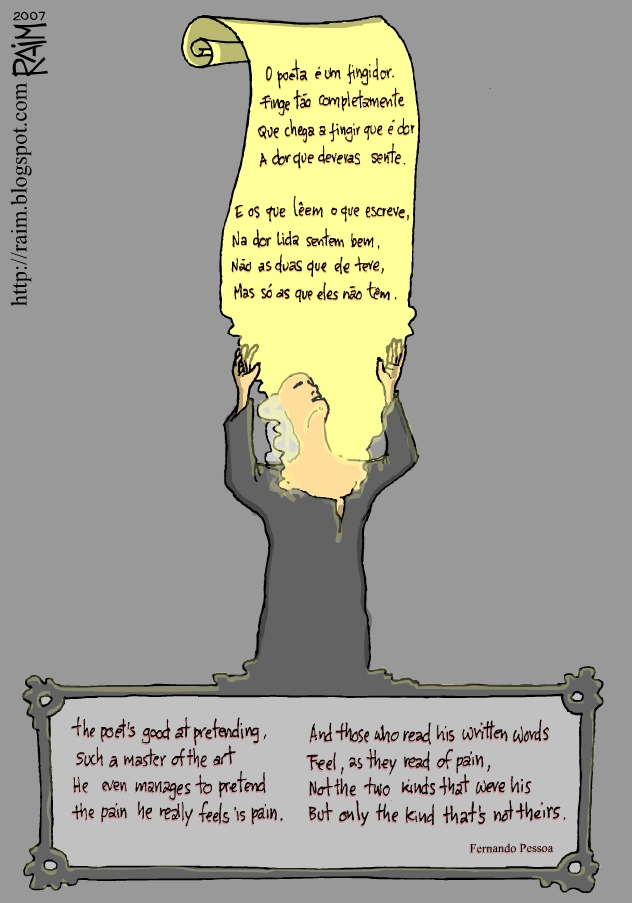 2007
RAIM
http://raim.blogspot.com
O poeta é um fingidor.
Finge tão completamente
Que chega a fingir que é dor
A dor que deveras sente.
E os que lêem o que escreve,
Na dor lida sentem bem,
Não as duas que ele teve,
Mas só as que eles não têm.
the poet's good at pretending,
Such a master of the art
He even manages to pretend
the pain he really feels is pain.
And those who read his written words
Feel, as they read of pain,
Not the two kinds that were his
But only the kind that's not theirs.
Fernando Pessoa